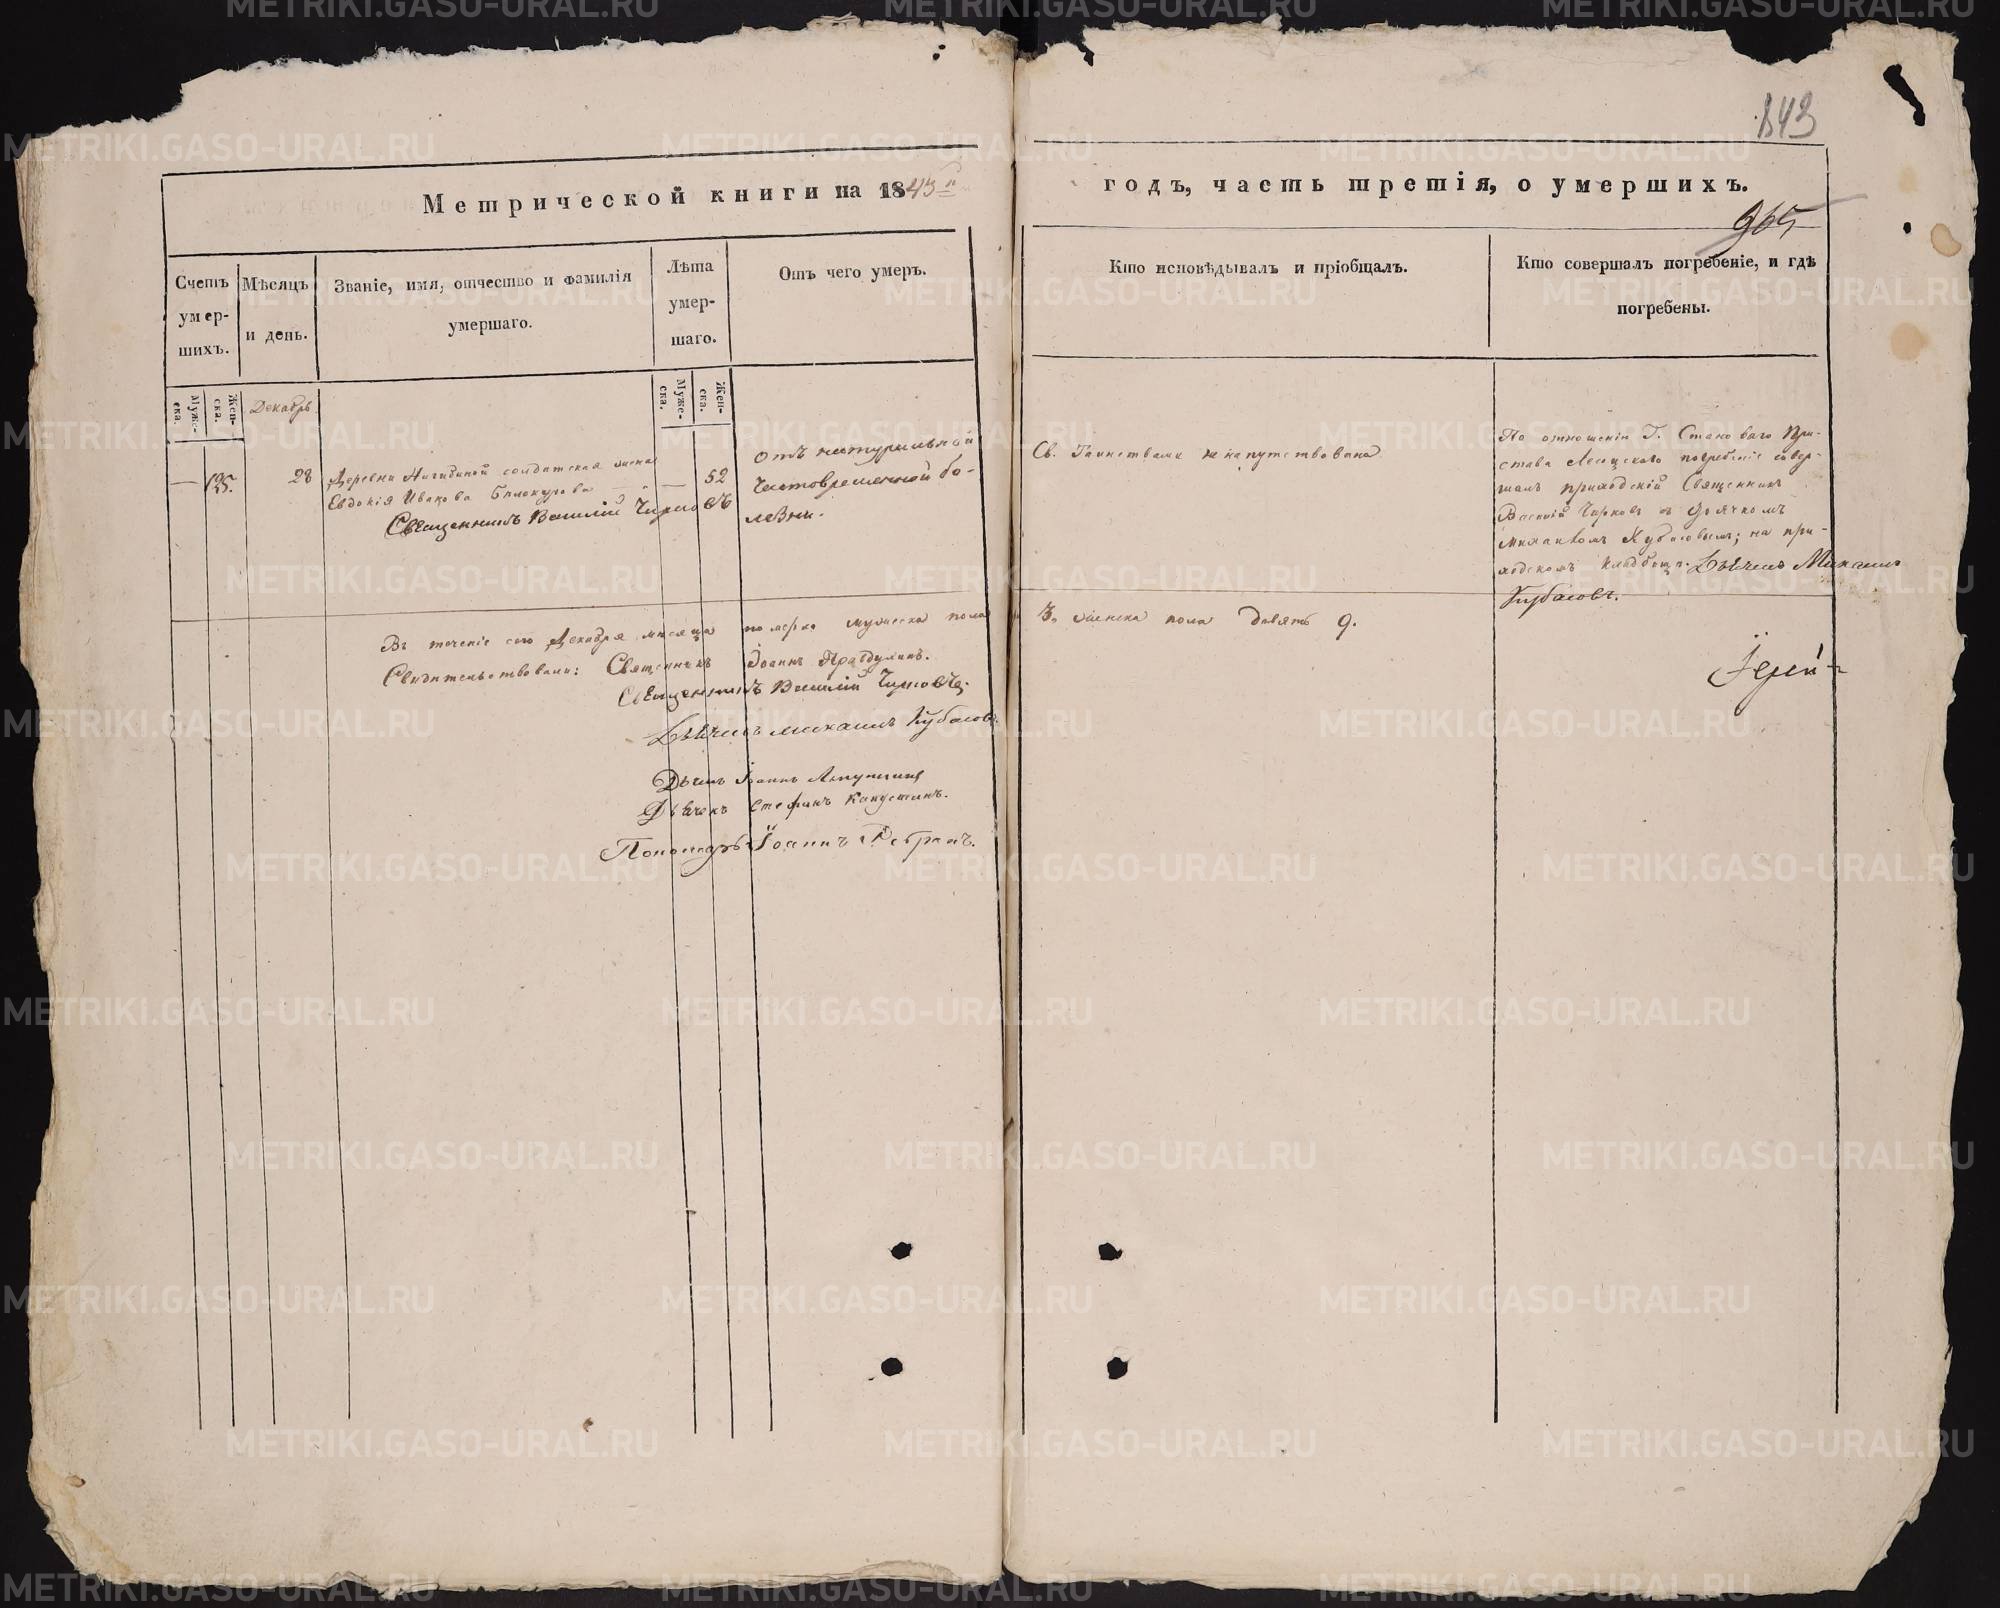 843
Метрической книги на 1843й
годъ, часть третія, о умершихъ.
965
Счетъ умер-шихъ.
Мѣсяцъ и день.
Званіе, имя, отчество и фамилія умершаго.
Лѣта умер-шаго.
Отъ чего умеръ.
Кто исповѣдывалъ и пріобщалъ.
Кто совершалъ погребеніе, и гдѣ погребены.
Муже-ска.
Жен-ска.
Декабрь
Муже-ска.
Жен-ска.
—
28
Деревни солдатская жена
Евдокія Иванова Бѣлокурова
Священникъ Василій Чирковъ
—
52
Отъ натуральной
частовременной бо-
лезни.
Св. Таинствами не напутствована
По отношенію Г. Становаго При-
става погребеніе совер-
шалъ приходскій Священникъ
Василій Чирковъ съ Дьячкомъ
Михаиломъ Кубасовымъ; на при-
ходскомъ кладбище. Дьячекъ Михаилъ
Кубасовъ.
Въ теченіе сего Декабря месяца померло мужеска пола
3, женска пола девять 9.
Свидетельствовали: Священникъ Іоаннъ Правдухинъ.
Священникъ Василій Чирковъ.
Дьячекъ Михаилъ Кубасовъ.
Дьячекъ Іоаннъ
Дьячекъ Стефанъ Капустинъ.
Пономарь Іоаннъ
Іерей
METRIKI.GASO-URAL.RU